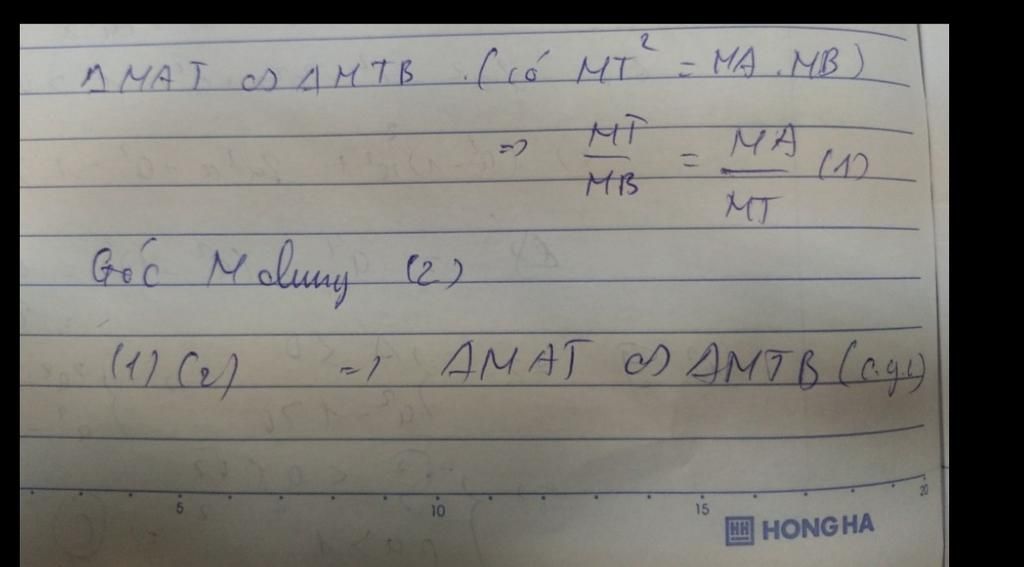 ΔMAT ∽ ΔMTB. (có MT² = MA.MB)
=> MT/MB = MA/MT (1)
Góc M chung (2)
(1) (2) => ΔMAT ∽ ΔMTB (c.g.c)
5 10 15 20
HH HONG HA